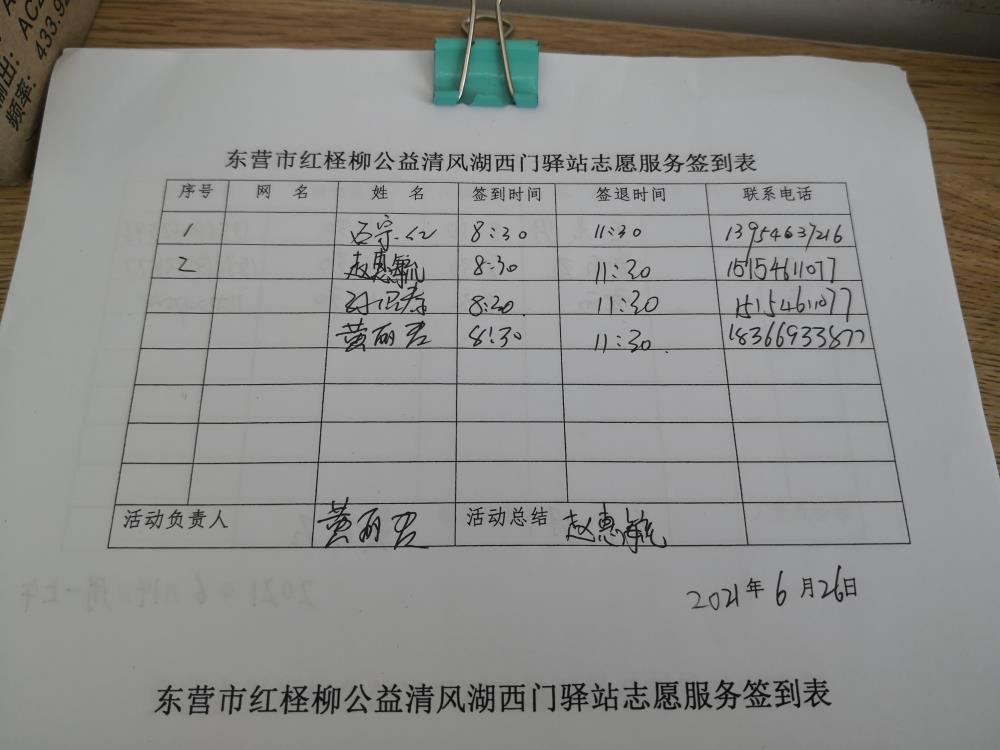 输出: AC2
频率: 433.92
东营市红柽柳公益清风湖西门驿站志愿服务签到表
序号 网 名 姓 名 签到时间 签退时间 联系电话
1 8:30 11:30 13954637216
2 赵惠毓 8:30 11:30 15154611077
8:30 11:30 15154611077
黄丽君 8:30 11:30 18366933877
活动负责人 黄丽君 活动总结 赵惠毓
2021年6月26日
东营市红柽柳公益清风湖西门驿站志愿服务签到表